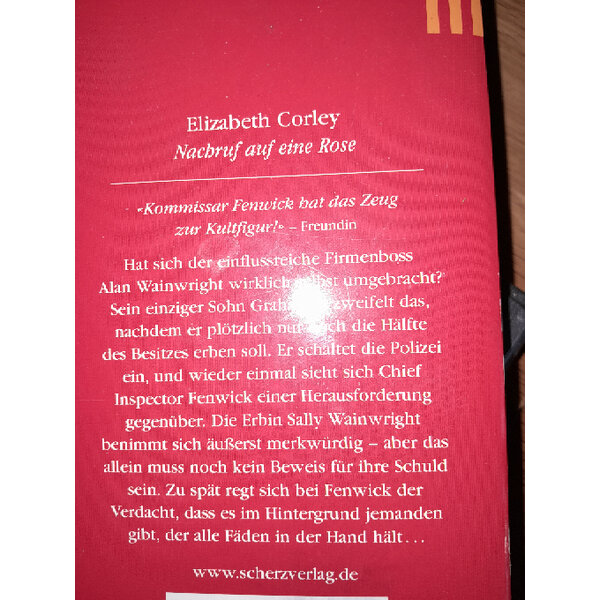 Elizabeth Corley
Nachruf auf eine Rose
«Kommissar Fenwick hat das Zeug
zur Kultfigur!» – Freundin
Hat sich der einflussreiche Firmenboss
Alan Wainwright wirklich selbst umgebracht?
Sein einziger Sohn Graham bezweifelt das,
nachdem er plötzlich nur noch die Hälfte
des Besitzes erben soll. Er schaltet die Polizei
ein, und wieder einmal sieht sich Chief
Inspector Fenwick einer Herausforderung
gegenüber. Die Erbin Sally Wainwright
benimmt sich äußerst merkwürdig – aber das
allein muss noch kein Beweis für ihre Schuld
sein. Zu spät regt sich bei Fenwick der
Verdacht, dass es im Hintergrund jemanden
gibt, der alle Fäden in der Hand hält ...
www.scherzverlag.de